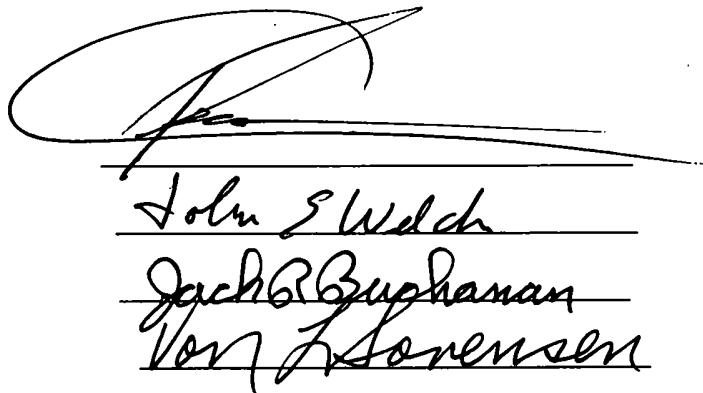 John E Welch
Jack R Buchanan
Von L Sorensen